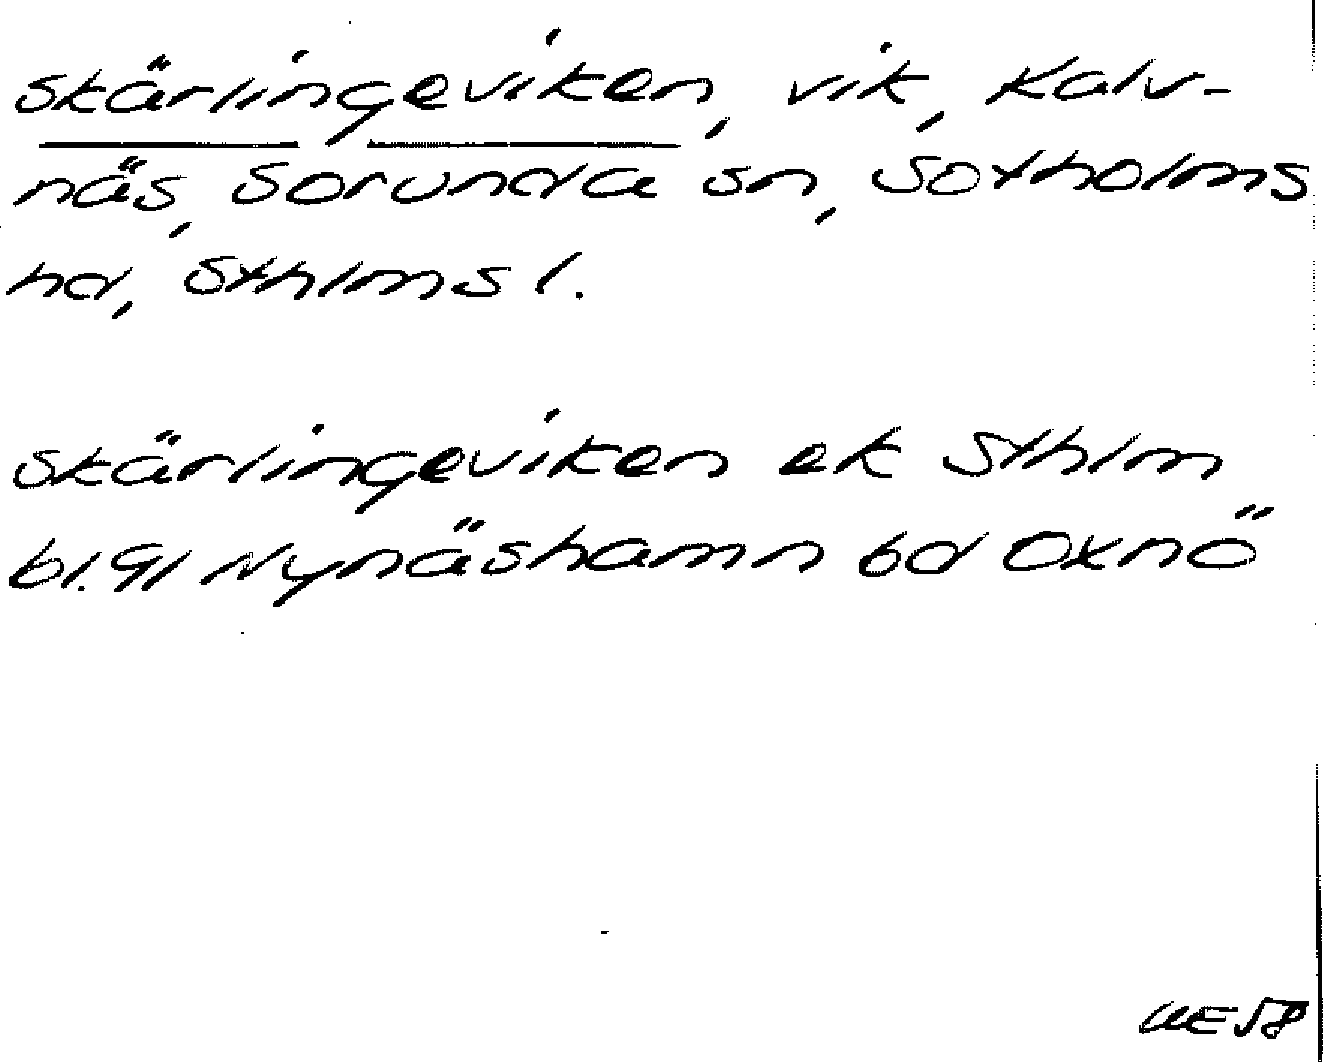 Skärlingeviken, vik, Kalv-
näs, Sorunda sn, Sotholms
hd, Sthlms l.
Skärlingeviken ek Sthlm
bl. 91 Nynäshamn bd Oxnö